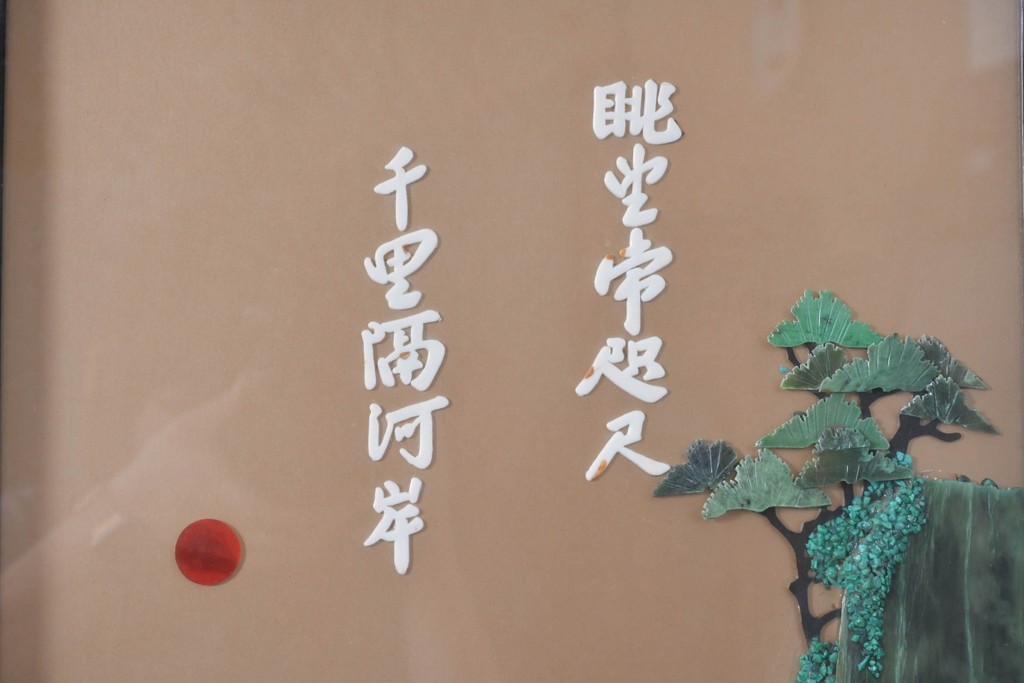 眺望常咫尺
千里隔河岸